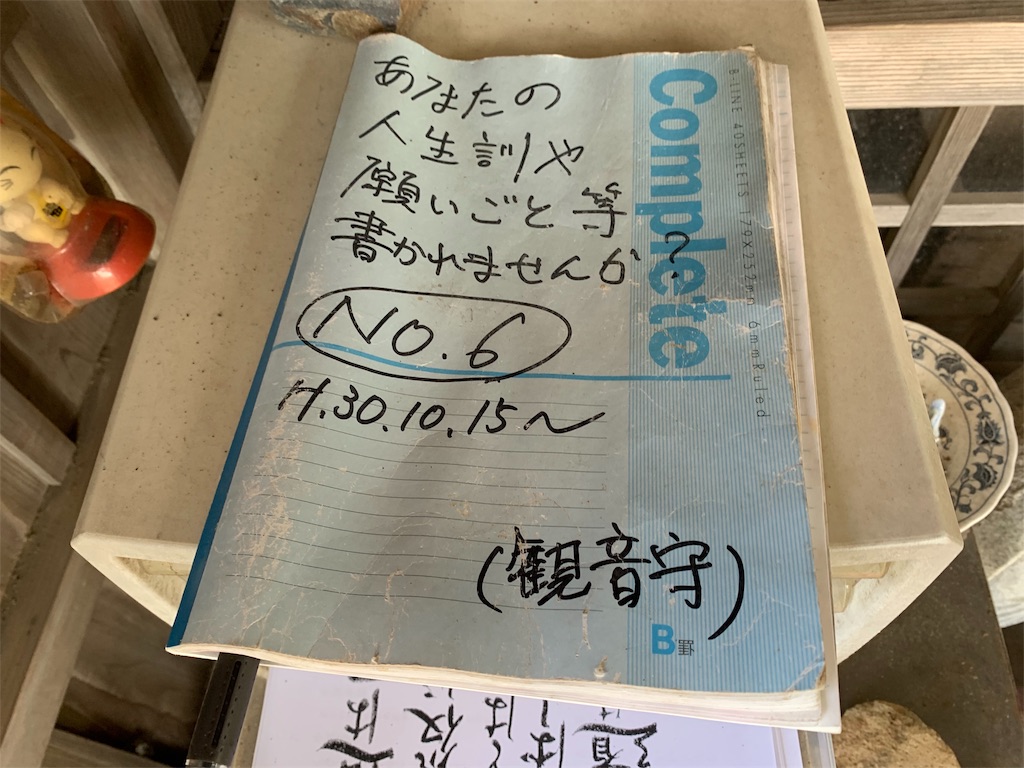 あなたの
人生訓や
願いごと等
書かれませんか?
NO.6
H.30.10.15〜
(観音守)
Complete
BLINE 40SHEETS 179X252mm 6mmRuled
B罫